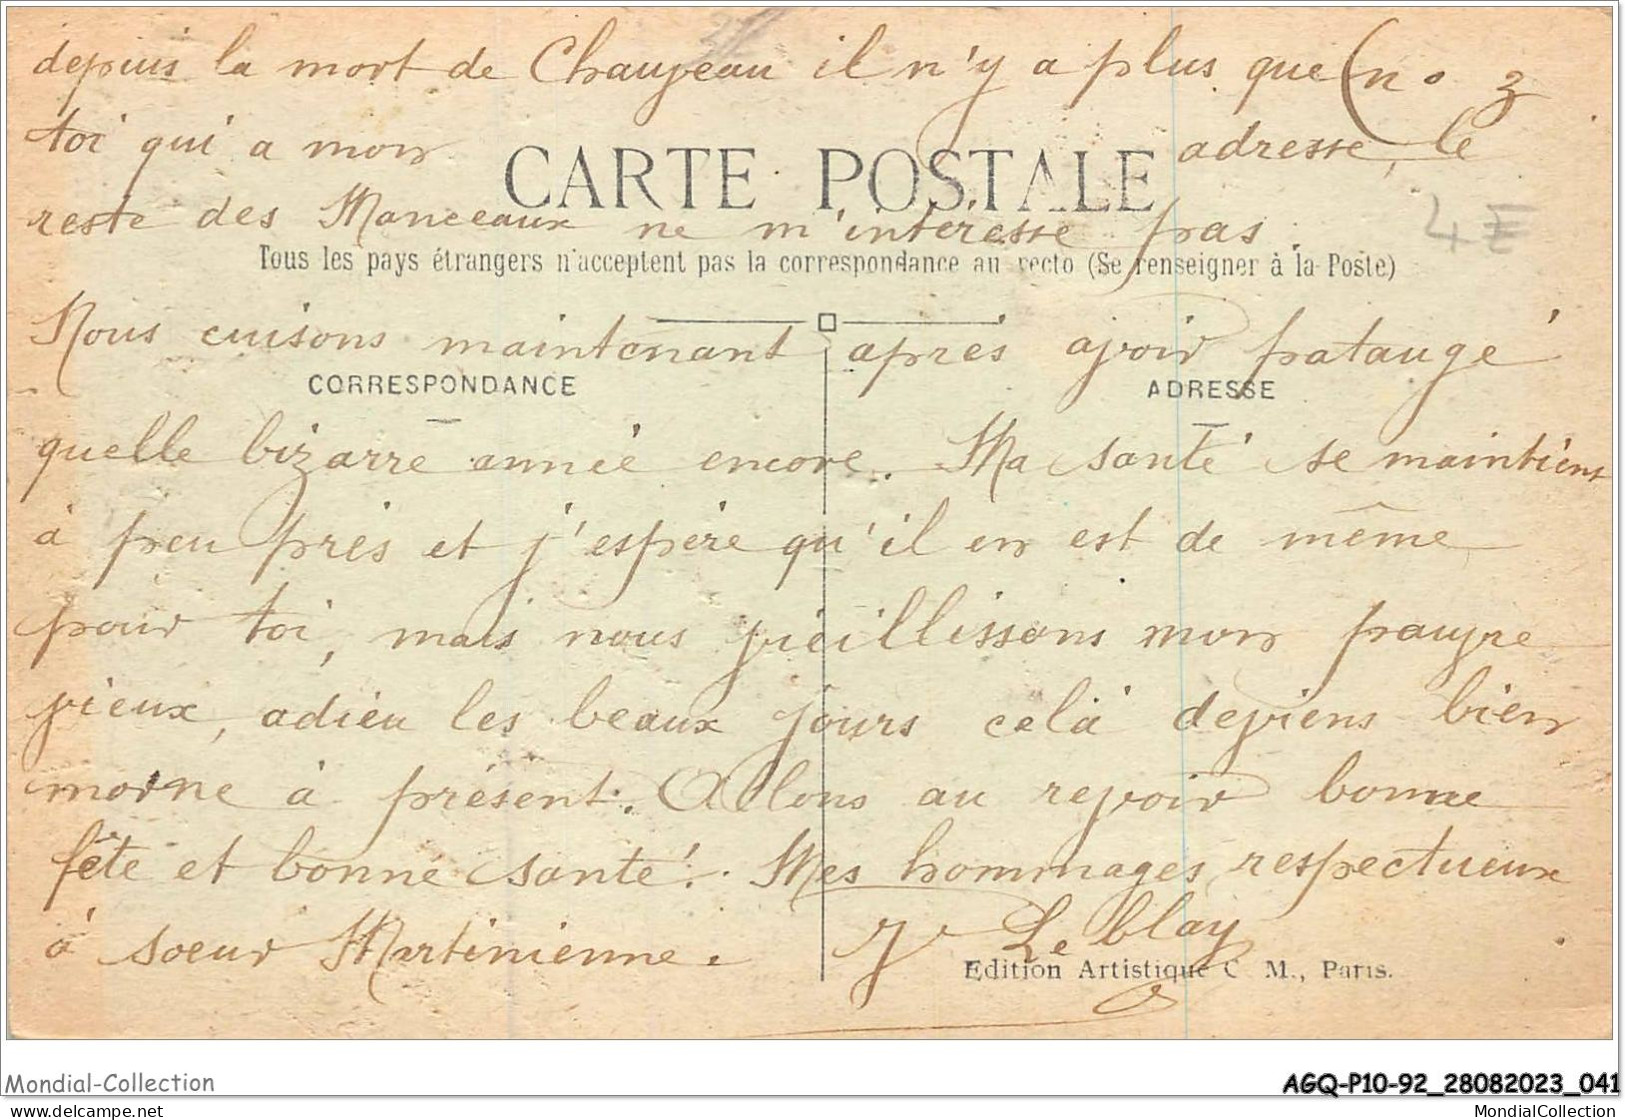 depuis la mort de Chauveau il n'y a plus que (n° 3
toi qui a mon adresse, le
CARTE POSTALE
reste des Manceaux ne m'intéresse pas.
4 E
Tous les pays étrangers n'acceptent pas la correspondance au recto (Se renseigner à la Poste)
Nous cuisons maintenant après avoir pataugé
CORRESPONDANCE
ADRESSE
quelle bizarre année encore. Ma santé se maintient
à peu près et j'espère qu'il en est de même
pour toi, mais nous vieillissons mon pauvre
vieux, adieu les beaux jours celà deviens bien
morne à présent. Allons au revoir bonne
fête et bonne santé! Mes hommages respectueux
à soeur Martinienne.
Le blay
Edition Artistique C. M., Paris.
Mondial-Collection
AGQ-P10-92_28082023_041
www.delcampe.net
MondialCollection